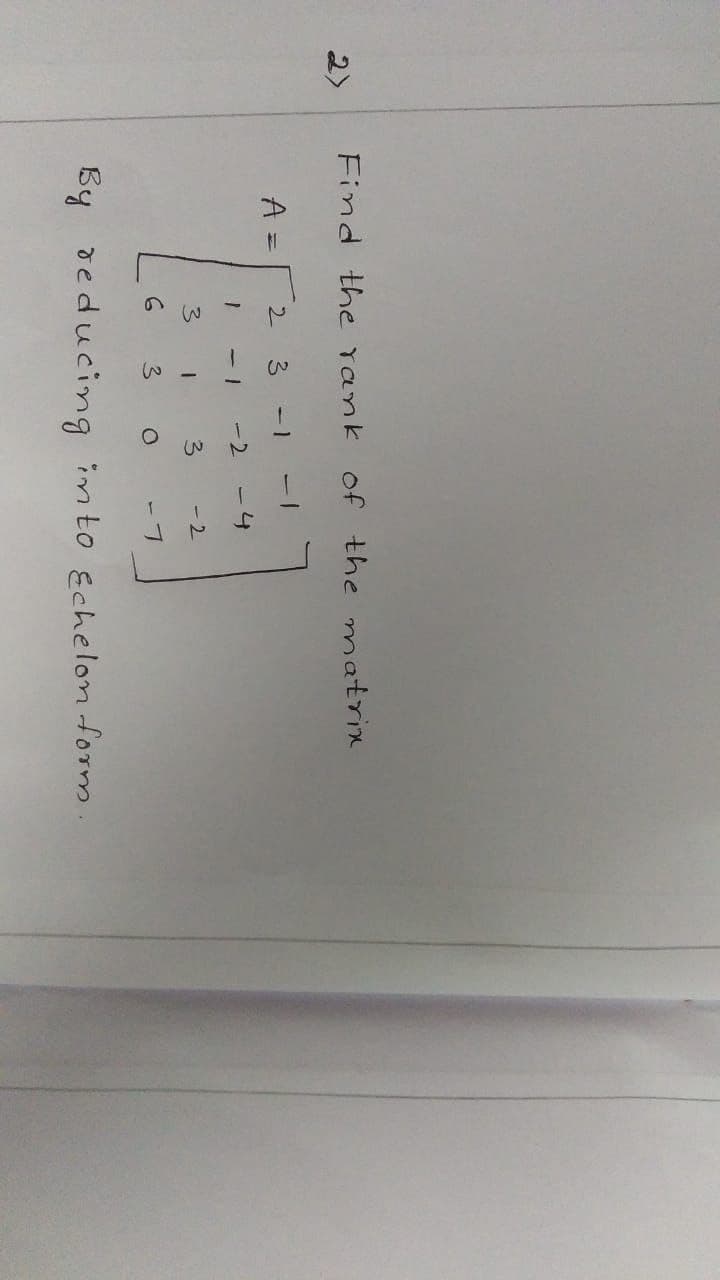 2) Find the rank of the matrix
A = [ 2 3 -1 -1
1 -1 -2 -4
3 1 3 -2
6 3 0 -7 ]
By reducing into Echelon form.